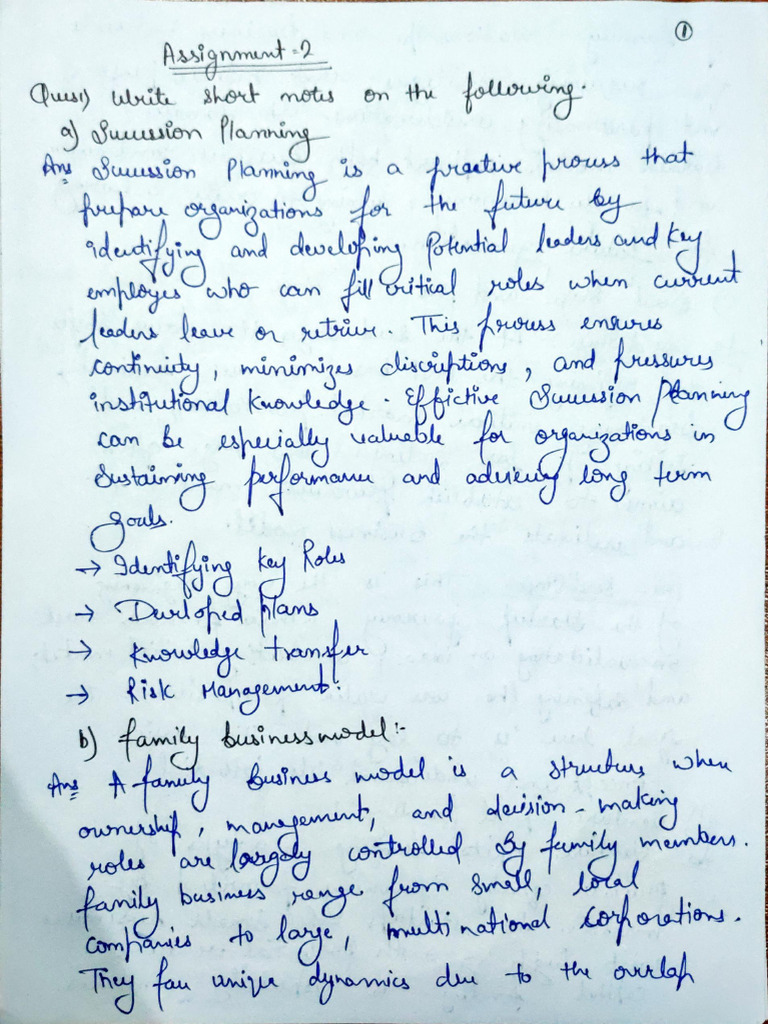 ①
Assignment-2
Ques1) Write short notes on the following.
a) Succession Planning
Ans Succession Planning is a proctive process that
prepare organizations for the future by
identifying and developing potential leaders and key
employes who can fill critical roles when current
leaders leave or retrive. This process ensures
continuity, minimizes discriptions, and pressures
institutional knowledge. Effictive Succession Planning
can be especially valuable for organizations in
Sustaining performance and advieing long term
goals.
→ Identifying Key Roles
→ Developed plans
→ Knowledge transfer
→ Risk Management.
b) family business model:-
Ans A family business model is a structure when
ownership, management, and decision-making
roles are largely controlled by family members.
family business range from small, local
companies to large, multinational corporations.
They face unique dynamics due to the overlap